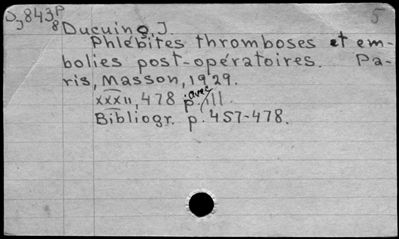 S,843,P 5
3 8
Ducuing, J
Phlébites thromboses et em-
bolies post-opératoires. Pa-
ris, Masson, 1929.
xxxii, 478 p. avec ill.
Bibliogr. p. 457-478.